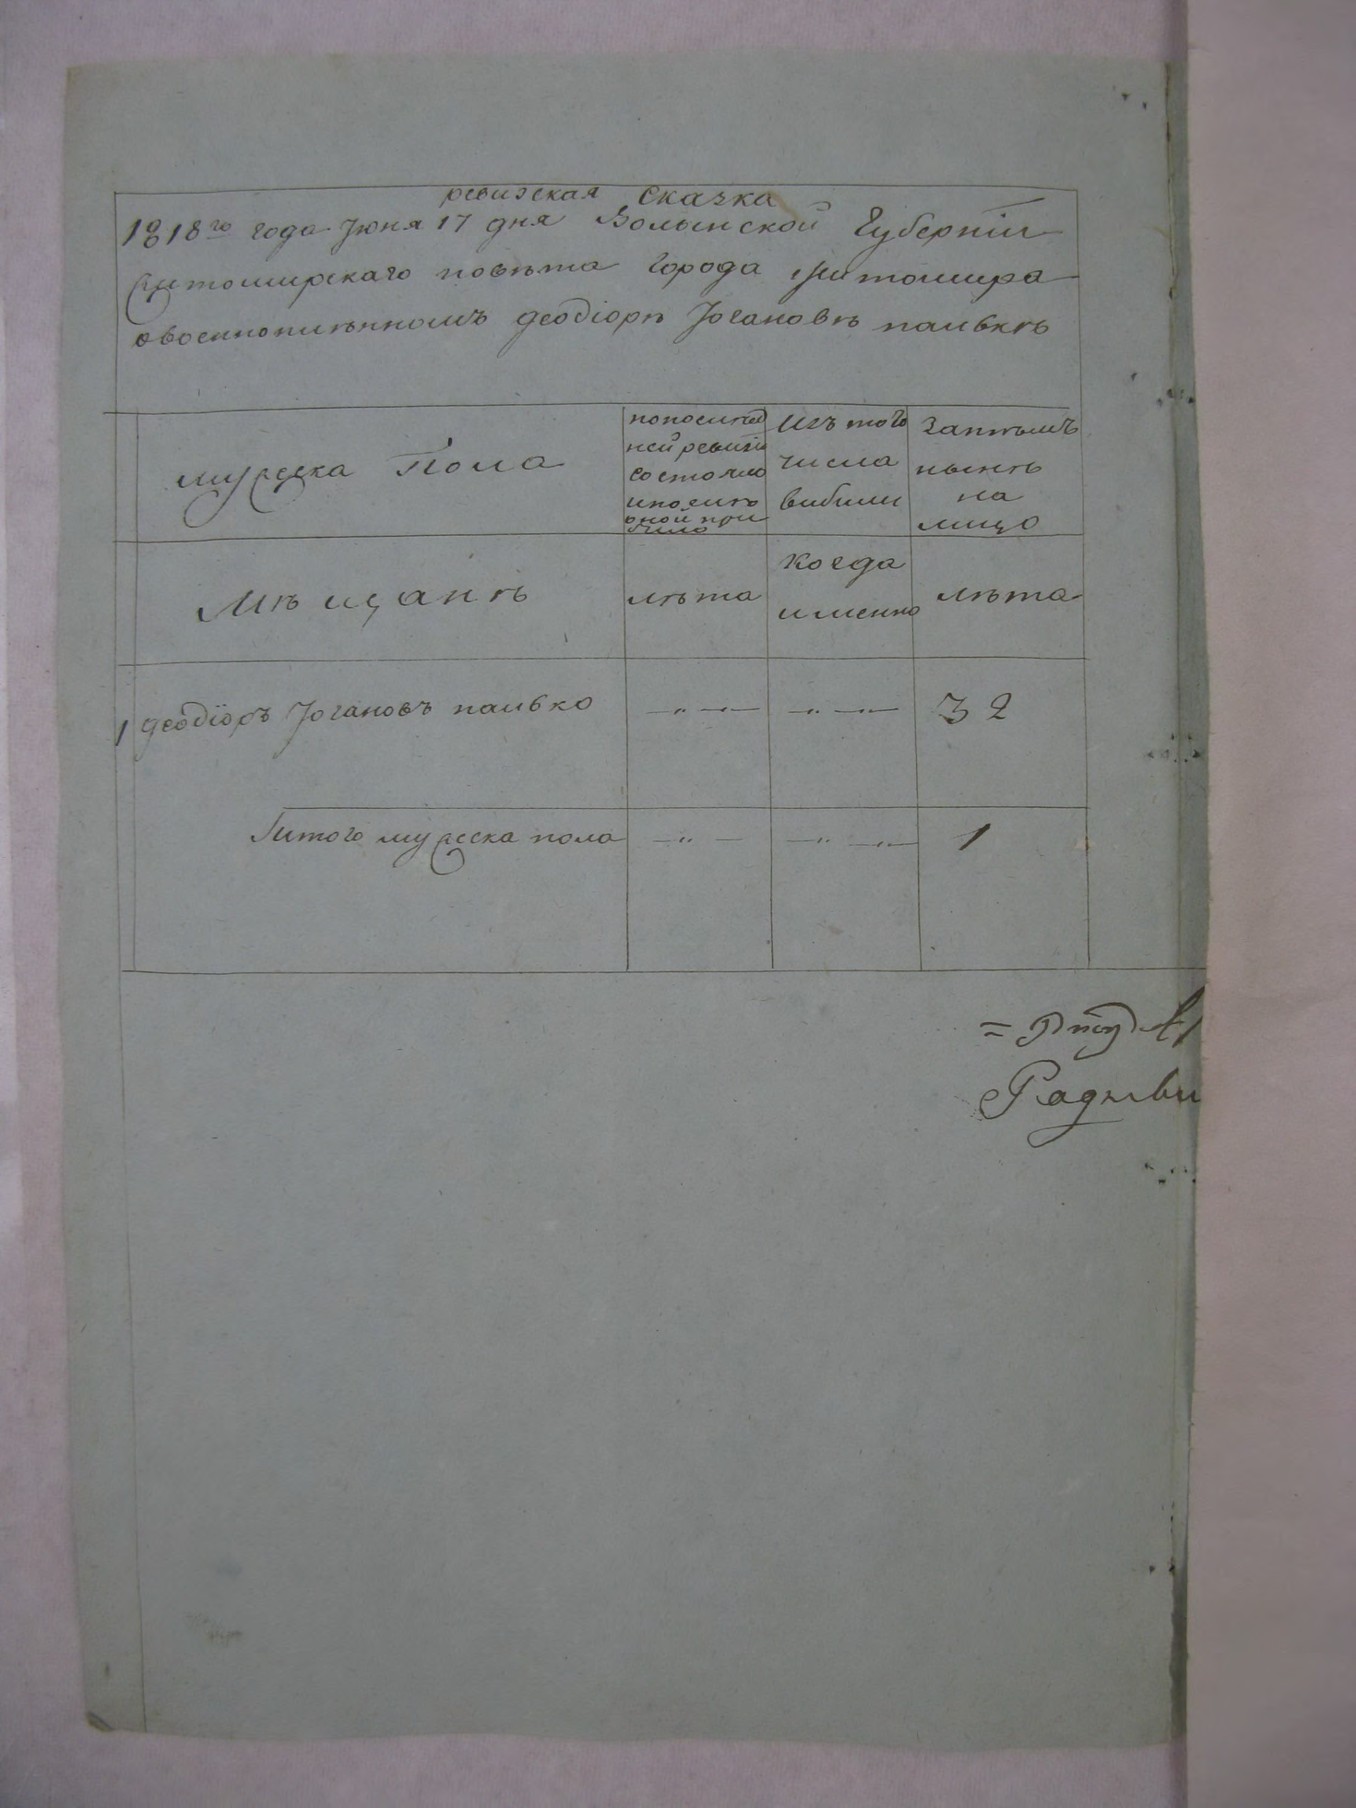 ревизская Сказка
1818го года Июня 17 дня Волынской Губернїи
Житомирскаго повѣта города Житомира
овоеннопленномъ Деодіорѣ Іогановѣ паивкѣ
мужеска Пола
попослед
ней ревизїи
состояло
ипослѣ
оной при
было
Изъ того
числа
вибили
Затѣмъ
нынѣ
на
лицо
Мѣщанѣ
лѣта
когда
именно
лѣта
1 Деодїоръ Іогановъ паивко —„— —„— 32
Итого мужеска пола —„— —„— 1
Радзиви